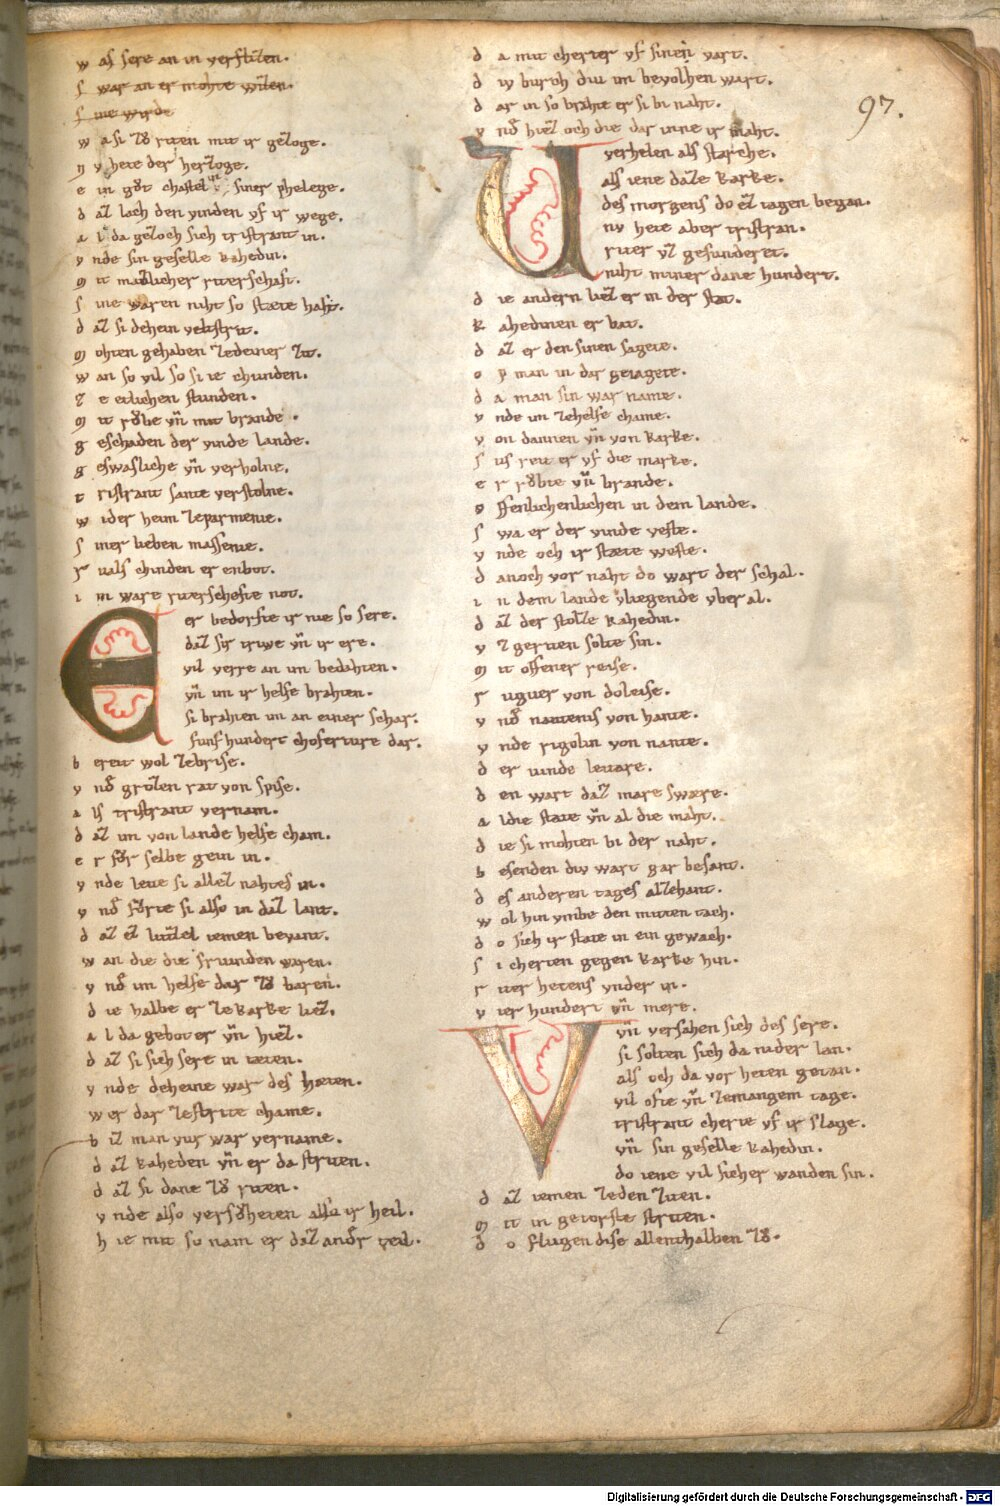 w aſ ſere an in verſlizen.
ſ war an er mohte wizen.
ſ wie wirde
w a ſi zů riten mit ir gezoge.
n v hete der herzoge.
e in gůt chaſtel in ſiner phelege.
d az lach den vinden vf ir wege.
a l da gezoch ſich triſtrant in.
v nde ſin geſelle kahedin.
m it manlicher riterſchaft.
ſ ine waren niht ſo ſtæte haft.
d az ſi dehein veltſtrit.
m ohten gehaben zedeiner zit.
w an ſo vil ſo ſi ie chunden.
z e etlichen ſtunden.
m it rǒbe vn̄ mit brande.
g eſchaden der vinde lande.
g eſwaſliche vn̄ verholne.
t riſtrant ſante verſtolne.
w ider heim zeparmenie.
ſ iner lieben maſſenie.
r ualſ chinden er enbot.
i m ware riterſchefte not.
E er bedorfte ir nie ſo ſere.
daz ſir triwe vn̄ ir ere.
vil verre an im bedahten.
vn̄ im ir helfe brahten.
ſi brahten im an einer ſchar.
funf hundert choferture dar.
b ereit wol zebriſe.
v nd̄ grozen rat von ſpiſe.
a lſ triſtrant vernam.
d az im von lande helfe cham.
e r fůr ſelbe gein in.
v nde leite ſi allez nahtes in.
v nd̄ fůrte ſi alſo in daz lant.
d az ez luzzel iemen bevant.
w an die die frunden waren.
v nd̄ im helfe dar zů baren.
d ie halbe er zekarke liez.
a l da gebot er vn̄ hiez.
d az ſi ſich ſere in tæten.
v nde deheine war des hæten.
w er dar zeſtrite chame.
b iz man fur war vername.
d az kaheden vn̄ er da ſtriten.
d az ſi dane zů riten.
v nde alſo verſůheten alſo ir heil.
h ie mit ſo nam er daz and̄r teil.
d a mit cherter vf ſinen vart.
d iv burch diu im bevolhen wart.
d ar in ſo brahte er ſi bi naht.
v nd̄ hiez och die dar inne ir maht.
U verhelen alſ ſtarche.
alſ iene daze karke.
des morgens do ez tagen began.
nv hete aber triſtran.
riter vz geſunderet.
niht miner dane hundert.
d ie andern liez er in der ſtat.
k ahedinen er bat.
d az er den ſinen ſagete.
o p man in dar geiagete.
d a man ſin war name.
v nde im zehelfe chame.
v on dannen vn̄ von karke.
ſ us reit er vf die marke.
e r rǒbte vn̄ brande.
o ffenlichenlichen in dem lande.
ſ wa er der vinde veſte.
v nde och ir ſtæte weſte.
d anoch vor naht do wart der ſchal.
i n dem lande vliegende vber al.
d az der ſtolze kahedin.
v z geriten ſolte ſin.
m it offener reiſe.
r uguer von doleiſe.
v nd̄ nautenis von hante.
v nde rigolin von nante.
d er vinde leitare.
d en wart daz mare ſwære.
a l die ſtate vn̄ al die maht.
d ie ſi mohten bi der naht.
b eſenden div wart gar beſant.
d es anderen tages alzehant.
w ol hin vmbe den mitten tach.
d o ſich ir ſtate in ein gewach.
ſ i cherten gegen karke hin.
r iter hetens vnder in.
v ier hundert vn̄ mere.
V vn̄ verſahen ſich des ſere.
ſi ſolten ſich da nider lan.
alſ och da vor heten getan.
vil ofte vn̄ zemangem tage.
triſtrant cherte vf ir ſlage.
vn̄ ſin geſelle kahedin.
do iene vil ſicher wanden ſin.
d az iemen zeden ziten.
m it in getorſte ſtriten.
d o flugen diſe allenthalben zů.
97.
Digitalisierung gefördert durch die Deutsche Forschungsgemeinschaft - DFG